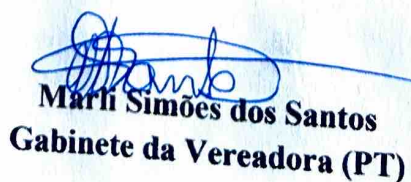 Marli Simões dos Santos
Gabinete da Vereadora (PT)